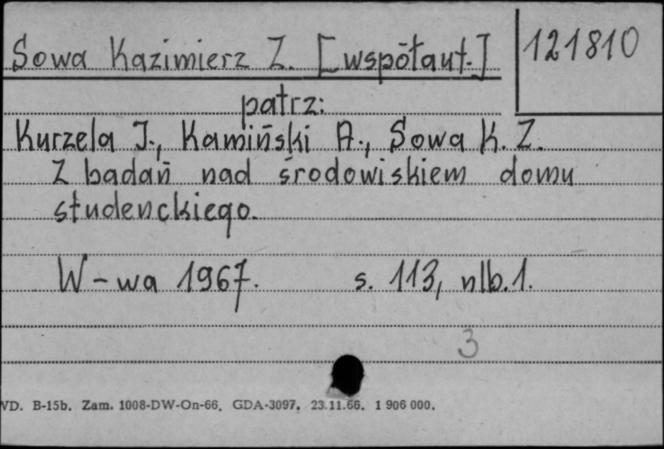 Sowa Kazimierz Z. [współaut.]
121810
patrz:
Kurzela J., Kamiński A., Sowa K. Z.
Z badań nad środowiskiem domu
studenckiego.
W-wa 1967. s. 113, nlb. 1.
3
WD. B-15b. Zam. 1008-DW-On-66. GDA-3097. 23.11.66. 1 906 000.